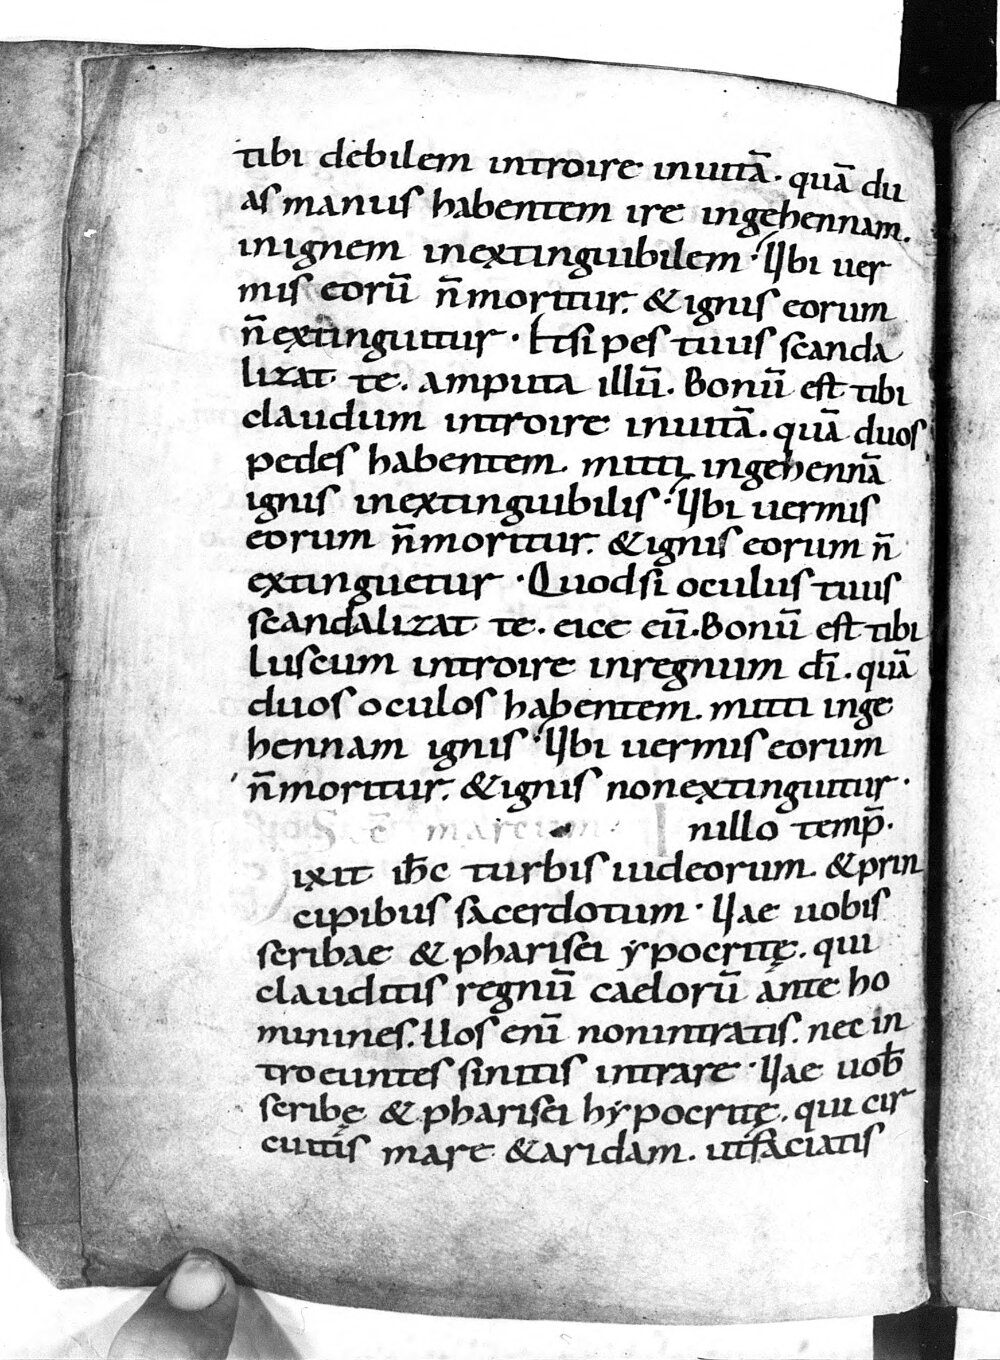 tibi debilem introire inuitā. quā du
as manus habentem ire ingehennam.
inignem inextinguibilem. Ubi uer
mis eorū n̄ moritur. & ignis eorum
n̄ extinguitur. Et si pes tuus scanda
lizat te. amputa illū. Bonū est tibi
claudum introire inuitā. quā duos
pedes habentem mitti ingehennā
ignis inextinguibilis. Ubi uermis
eorum n̄ moritur. & ignis eorum n̄
extinguetur. Quodsi oculus tuus
scandalizat te. eice eū. Bonū est tibi
luscum introire inregnum dī. quā
duos oculos habentem. mitti inge
hennam ignis. Ubi uermis eorum
n̄ moritur. & ignis nonextinguitur.
marcum. Inillo temp̄.
ixit ih̄c turbis iudeorum. & prin
cipibus sacerdotum. Uae uobis
scribae & pharisei ypocritę. qui
clauditis regnū caelorū ante ho
minines. Uos enī nonintratis. nec in
troeuntes sinitis intrare. Uae uob̄
scribę & pharisei hypocritę. qui cir
cuitis mare & aridam. utfaciatis